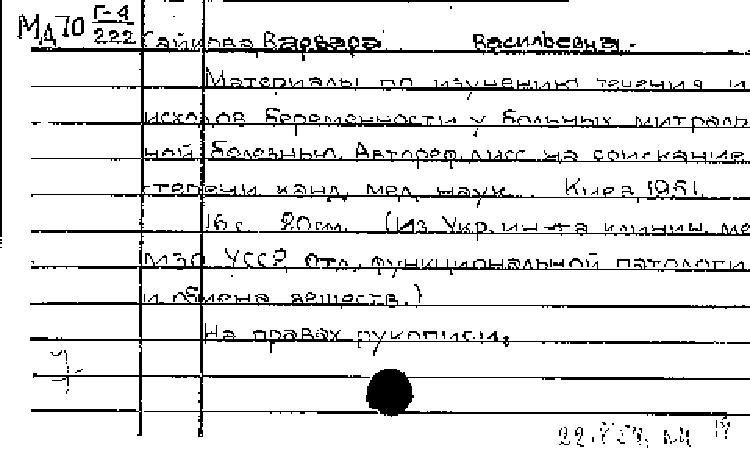 Мд70 Г-4/222
Варвара Васильевна.
Материалы по изучению течения и
исходов беременности у больных митраль
ной болезнью. Автореф. дисс. на соискание
степени канд. мед. наук. Киев, 1961.
16 с. 20см. (Из Укр. ин-та клинич. ме
МЗО УССР, отд. функциональной патологи
и обмена веществ.)
На правах рукописи.